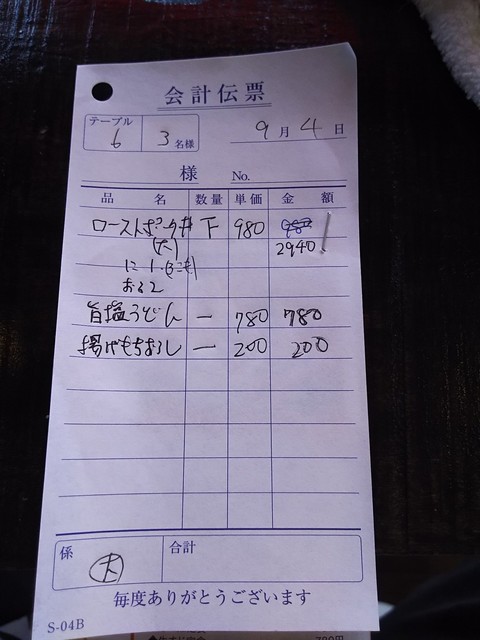 会計伝票
テーブル 6 3 名様
9 月 4 日
様 No.
品 名 数量 単価 金 額
ローストポーク丼 下 980
(大) 2940
に1.
おろ2
旨塩うどん 一 780 780
揚げもちおろし 一 200 200
係 大 合計
毎度ありがとうございます
S-04B